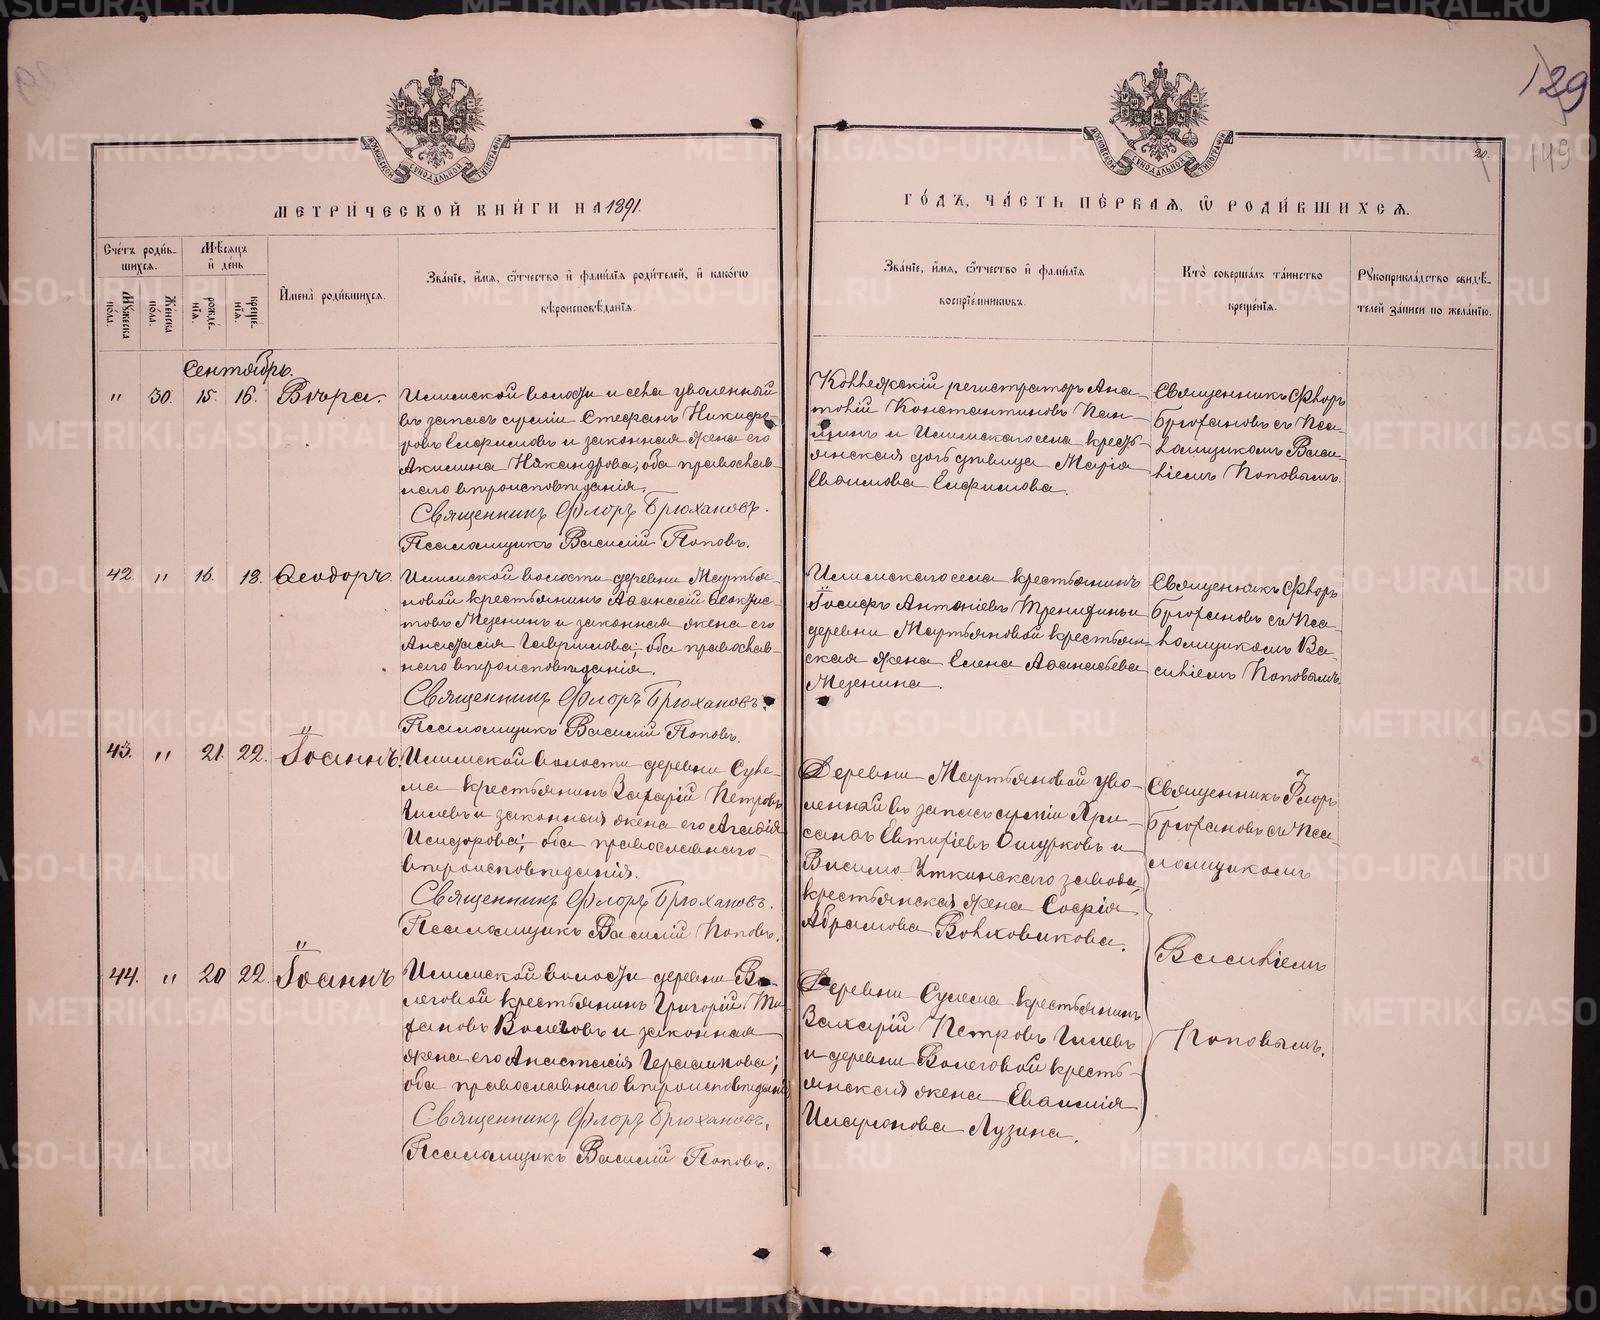 129
149
20.
МЕТРИ́ЧЕСКОЙ КНИ́ГИ НА 1891.
ГО́ДЪ, ЧА́СТЬ ПЕ́РВАЯ, Ѡ РОДИ́ВШИХСЯ.
Сче́тъ роди́в-
шихся.
Му́жеска по́ла.
Же́нска по́ла.
Мѣ́сяцъ
и де́нь
рожде́-
нїя.
креще́-
нїя.
Имена̀ роди́вшихся.
Зва́нїе, и́мя, ѻ́тчество и фами́лїя роди́телей, и како́гѡ
вѣроисповѣ́данїя.
Зва́нїе, и́мя, ѻ́тчество и фами́лїя
воспрїе́мниковъ.
Кто̀ соверша́лъ та́инство
креще́нїя.
Рꙋкоприкла́дство свидѣ́-
телей за́писи по жела́нїю.
Сентябрь.
" 30. 15. 16. Вѣра.
Илимской волости и села уволенный
въ запасъ арміи Стефанъ Никифо-
ровъ Елфимовъ и законная жена его
Акилина Никандрова; оба православ-
наго вѣроисповѣданія.
Священникъ Флоръ Брюхановъ.
Псаломщикъ Василій Поповъ.
Коллежскій регистраторъ Ана-
толій Константиновъ Пан-
шинъ и Илимскаго села кресть-
янская дочь дѣвица Марія
Елфимова.
Священникъ Флоръ
Брюхановъ съ Пса-
ломщикомъ Васи-
ліемъ Поповымъ.
42. " 16. 18. Ѳеодоръ.
Илимской волости деревни Мартья-
новой крестьянинъ Аѳанасій Ѳеоктис-
товъ Мезенинъ и законная жена его
Анастасія Гаврилова; оба православ-
наго вѣроисповѣданія.
Священникъ Флоръ Брюхановъ.
Псаломщикъ Василій Поповъ.
Илимскаго села крестьянинъ
Іосифъ Антоніевъ и
деревни Мартьяновой крестьян-
ская жена Елена Аѳанасьева
Мезенина.
Священникъ Флоръ
Брюхановъ съ Пса-
ломщикомъ Ва-
силіемъ Поповымъ.
43. " 21. 22. Іоаннъ.
Илимской волости деревни Суле-
ма крестьянинъ Захарій Петровъ
Гилевъ и законная жена его Агафія
Исидорова; оба православнаго
вѣроисповѣданія.
Священникъ Флоръ Брюхановъ.
Псаломщикъ Василій Поповъ.
Деревни Мартьяновой уво-
ленный въ запасъ арміи Хри-
санѳъ Евтихіевъ Ошурковъ и
Висимо-Уткинскаго завода
крестьянская жена Софія
Абрамова Волховикова.
Священникъ Флоръ
Брюхановъ съ Пса-
ломщикомъ
Василіемъ
Поповымъ.
44. " 20 22. Іоаннъ
Илимской волости деревни Во-
леговой крестьянинъ Григорій Ти-
хановъ Волеговъ и законная
жена его Анастасія Герасимова;
оба православнаго вѣроисповѣданія
Священникъ Флоръ Брюхановъ.
Псаломщикъ Василій Поповъ.
Деревни Сулема крестьянинъ
Захарій Петровъ Гилевъ
и деревни Волеговой кресть-
янская жена Евѳимія
Иларіонова Лузина.
METRIKI.GASO-URAL.RU